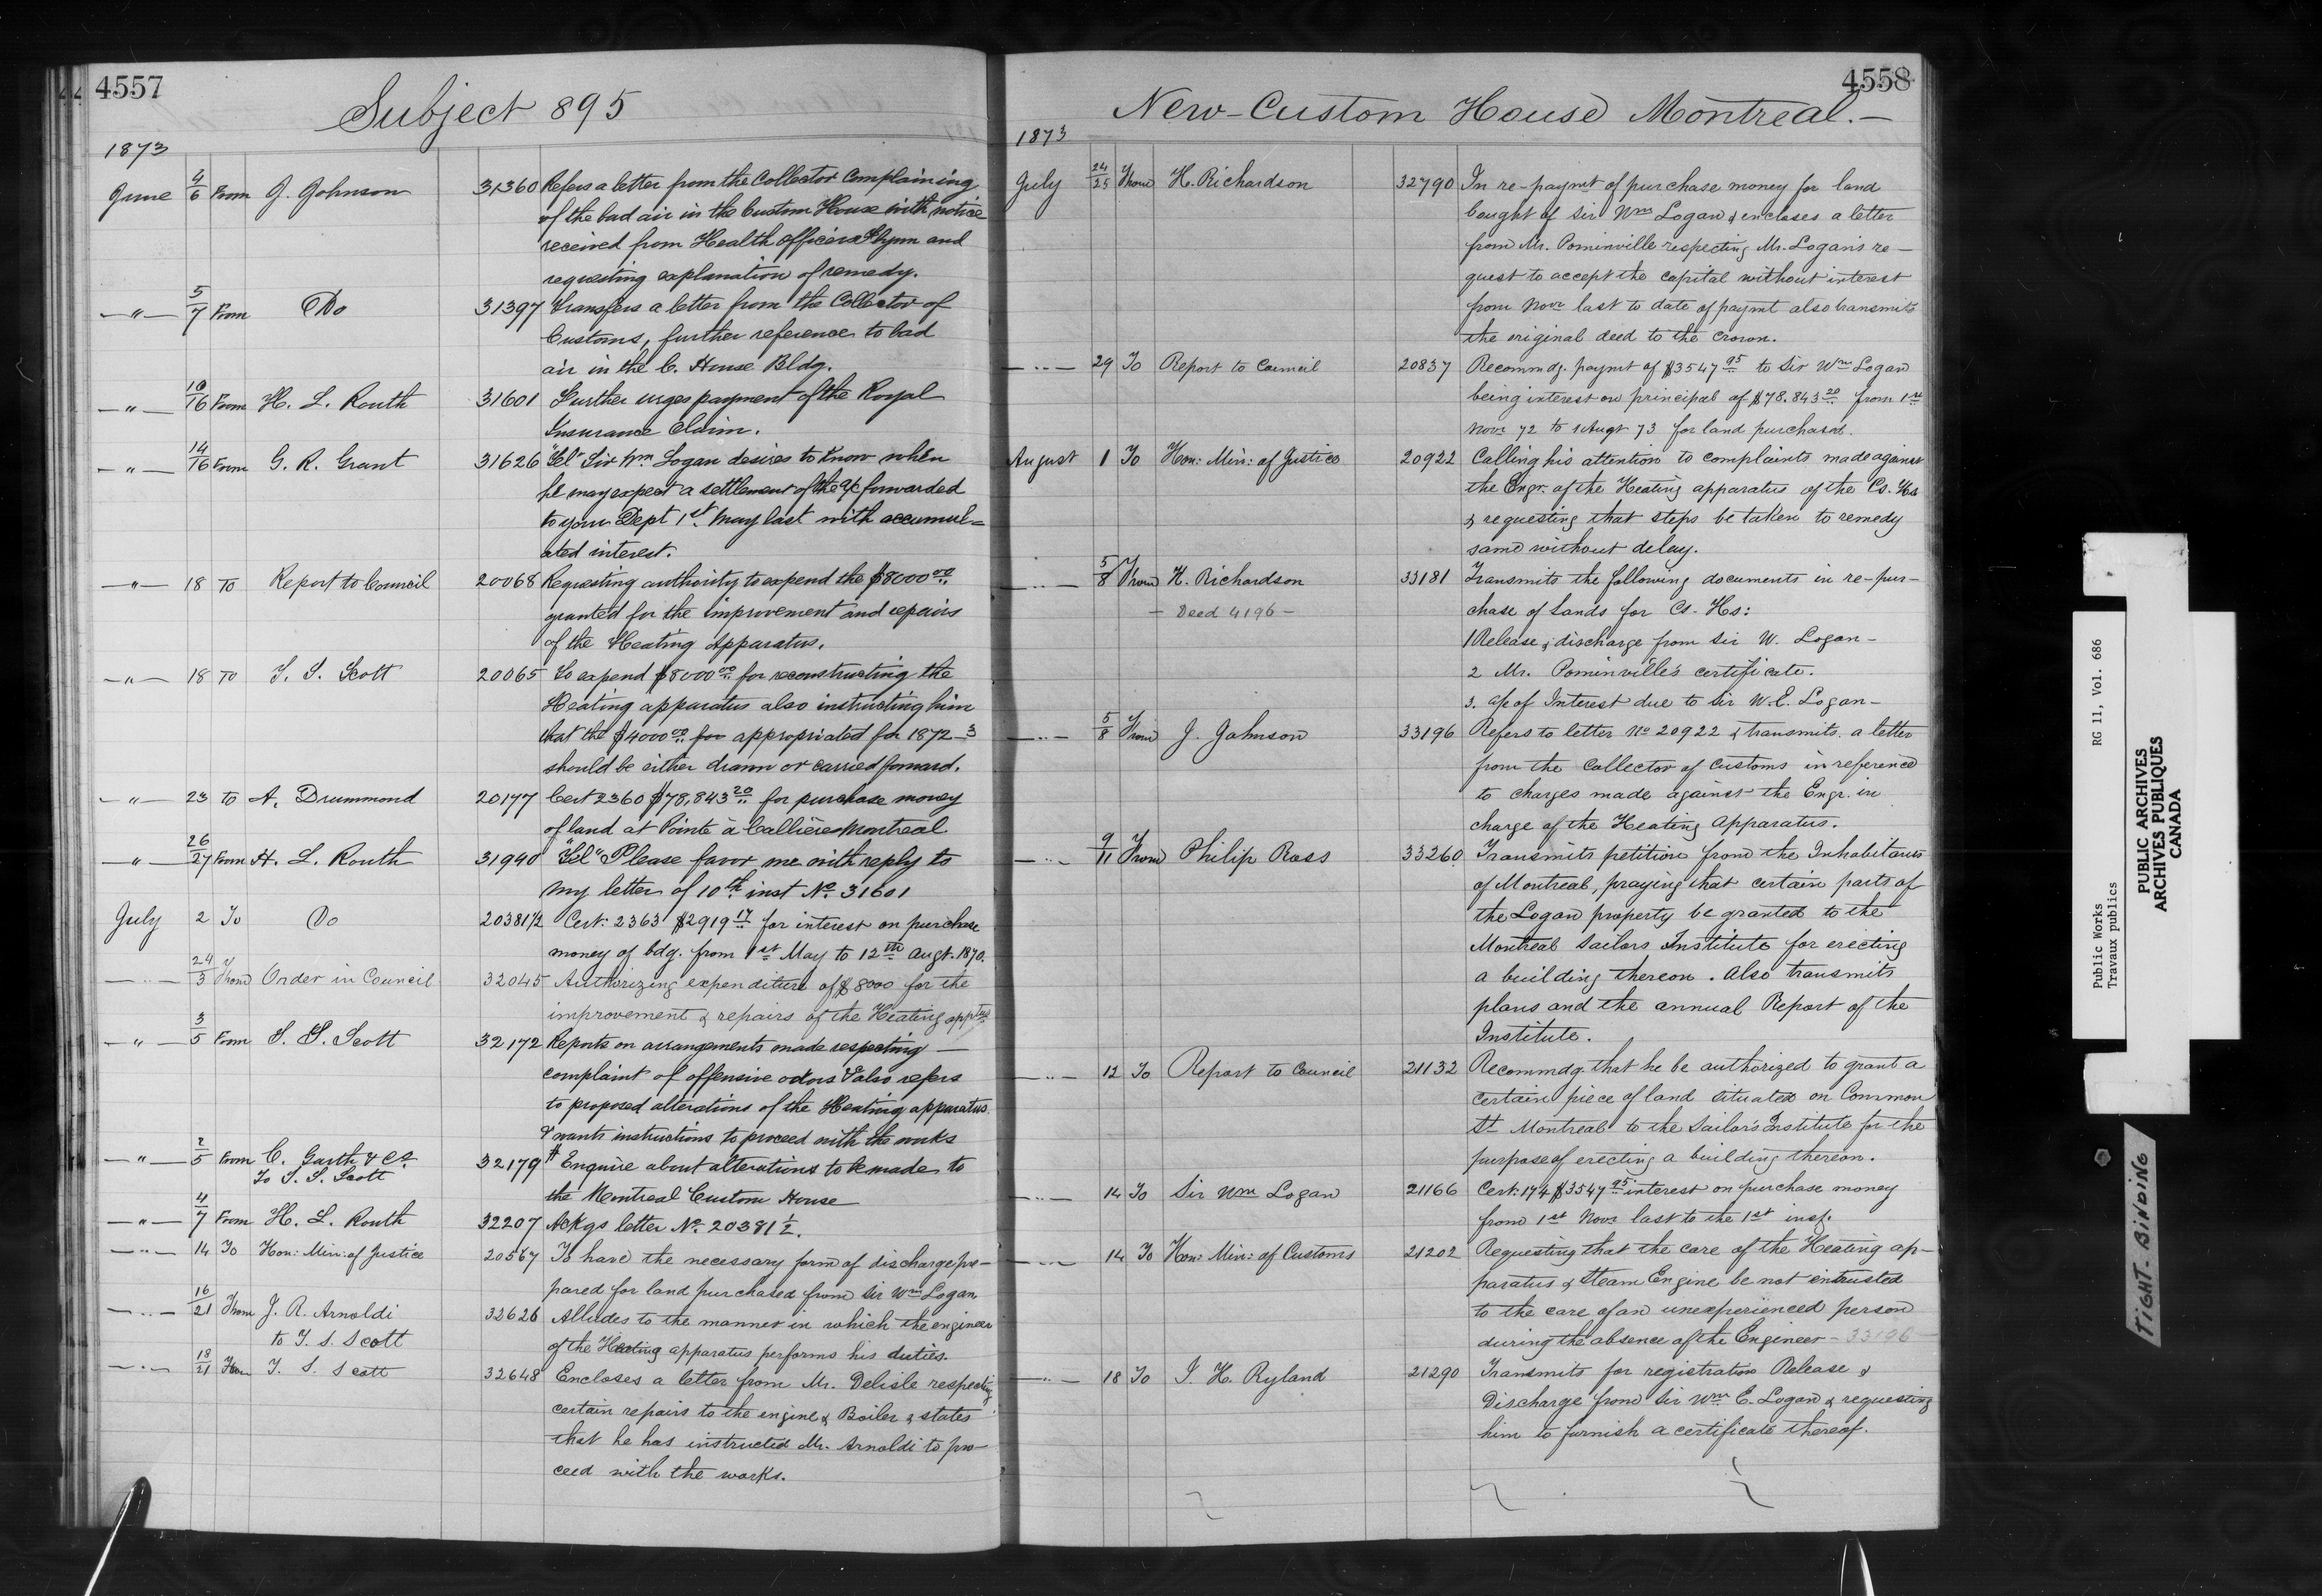 4557
Subject 895
1873
June 4/6 From J. Johnson 31360 Refers a letter from the Collector Complaining
of the bad air in the Custom House with notice
received from Health officers Flynn and
requesting explanation of remedy.
—"— 5/7 From Do 31397 Transfers a letter from the Collector of
Customs, further reference to bad
air in the C. House Bldg.
—"— 10/16 From H. L. Routh 31601 Further urges payment of the Royal
Insurance Claim.
—"— 14/16 From G. R. Grant 31626 "Tel" Sir Wm Logan desires to know when
he may expect a settlement of the a/c forwarded
to your Dept 1st May last with accumul=
ated interest.
—"— 18 To Report to Council 20068 Requesting authority to expend the $8000 00
granted for the improvement and repairs
of the Heating Apparatus.
—"— 18 To T. S. Scott 20065 To expend $8000 00 for reconstructing the
Heating apparatus also instructing him
that the $4000 00 for appropriated for 1872-3
should be either drawn or carried forward.
—"— 23 to A. Drummond 20177 Cert 2360 $78,843 20 for purchase money
of land at Pointe à Callière Montreal
—"— 26/27 From H. L. Routh 31940 "Tel" Please favor me with reply to
my letter of 10th inst No. 31601
July 2 To Do 20381½ Cert: 2363 $2919 17 for interest on purchase
money of bdg. from 1st May to 12th Augt. 1870.
—"— 24/3 From Order in Council 32045 Authorizing expenditure of $8000 for the
improvement & repairs of the Heating apptus
—"— 3/5 From T. S. Scott 32172 Reports on arrangements made respecting —
complaint of offensive odors & also refers
to proposed alterations of the Heating apparatus
& wants instructions to proceed with the works
—"— 2/5 From C. Garth & Co. 32179 Enquire about alterations to be made to
To T. S. Scott
the Montreal Custom House
—"— 4/7 From H. L. Routh 32207 Ackgs letter No. 20381½.
—"— 14 To Hon: Min: of Justice 20567 To have the necessary form of discharge pre-
pared for land purchased from Sir Wm Logan
—"— 16/21 From J. R. Arnoldi 32626 Alludes to the manner in which the engineer
to T. S. Scott
of the Heating apparatus performs his duties.
—"— 18/21 From T. S. Scott 32648 Encloses a letter from Mr. Delisle respecting
certain repairs to the engine & Boiler & states
that he has instructed Mr. Arnoldi to pro-
ceed with the works.
4558
New-Custom House Montreal.—
1873
July 24/25 From H. Richardson 32790 In re-paymt of purchase money for land
bought of Sir Wm Logan & encloses a letter
from Mr. Pominville respecting Mr. Logan's re-
quest to accept the capital without interest
from Novr last to date of paymt also transmits
the original deed to the Crown.
—"— 29 To Report to Council 20837 Recommdg. paymt of $3547 95 to Sir Wm Logan
being interest on principal of $78.843 20 from 1st
Novr 72 to 1 Augt 73 for land purchased.
August 1 To Hon: Min: of Justice 20922 Calling his attention to complaints made against
the Engr. of the Heating apparatus of the Cs. Hs
& requesting that steps be taken to remedy
same without delay.
—"— 5/8 From H. Richardson 33181 Transmits the following documents in re-pur-
— Deed 4196 — chase of Lands for Cs. Hs:
1 Release & discharge from Sir W. Logan -
2 Mr. Pominville's certificate.
3. a/c of Interest due to Sir W. E. Logan -
—"— 5/8 From J. Johnson 33196 Refers to letter No 20922 & transmits a letter
from the Collector of Customs in reference
to charges made against the Engr. in
charge of the Heating Apparatus.
—"— 9/11 From Philip Ross 33260 Transmits petition from the Inhabitants
of Montreal, praying that certain parts of
the Logan property be granted to the
Montreal Sailors Institute for erecting
a building thereon. Also transmits
plans and the annual Report of the
Institute.
—"— 12 To Report to Council 21132 Recommdg that he be authorized to grant a
certain piece of land situated on Common
St Montreal to the Sailor's Institute for the
purpose of erecting a building thereon.
—"— 14 To Sir Wm Logan 21166 Cert: 174 $3547 95 interest on purchase money
from 1st Novr last to the 1st inst.
—"— 14 To Hon: Min: of Customs 21202 Requesting that the care of the Heating ap-
paratus & Steam Engine be not entrusted
to the care of an unexperienced person
during the absence of the Engineer - 33196
—"— 18 To I. H. Ryland 21290 Transmits for registration Release &
Discharge from Sir Wm E. Logan & requesting
him to furnish a certificate thereof.
Public Works RG 11, Vol. 686
Travaux publics
PUBLIC ARCHIVES
ARCHIVES PUBLIQUES
CANADA
TIGHT BINDING